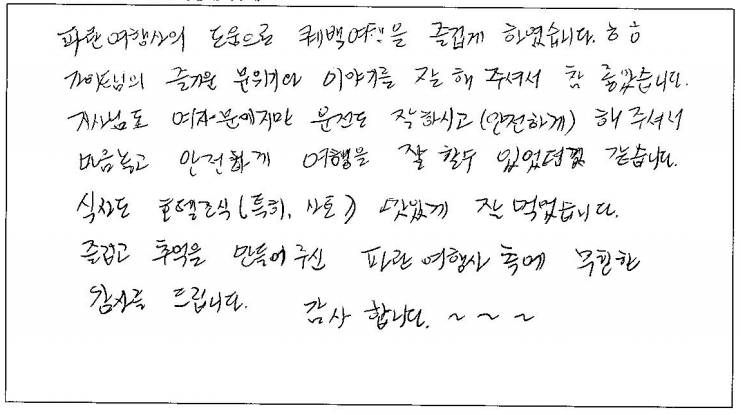 파란여행사의 도움으로 퀘백여행을 즐겁게 하였습니다. ㅎㅎ
가이드님의 즐거운 분위기와 이야기를 잘 해 주셔서 참 좋았습니다.
기사님도 여자분이지만 운전도 잘하시고(안전하게) 해 주셔서
마음놓고 안전하게 여행을 잘 할수 있었던것 같습니다.
식사도 호텔조식(특히, 샤토) 맛있게 잘 먹었습니다.
즐겁고 추억을 만들어 주신 파란여행사 측에 무한한
감사를 드립니다. 감사 합니다. ~ ~ ~